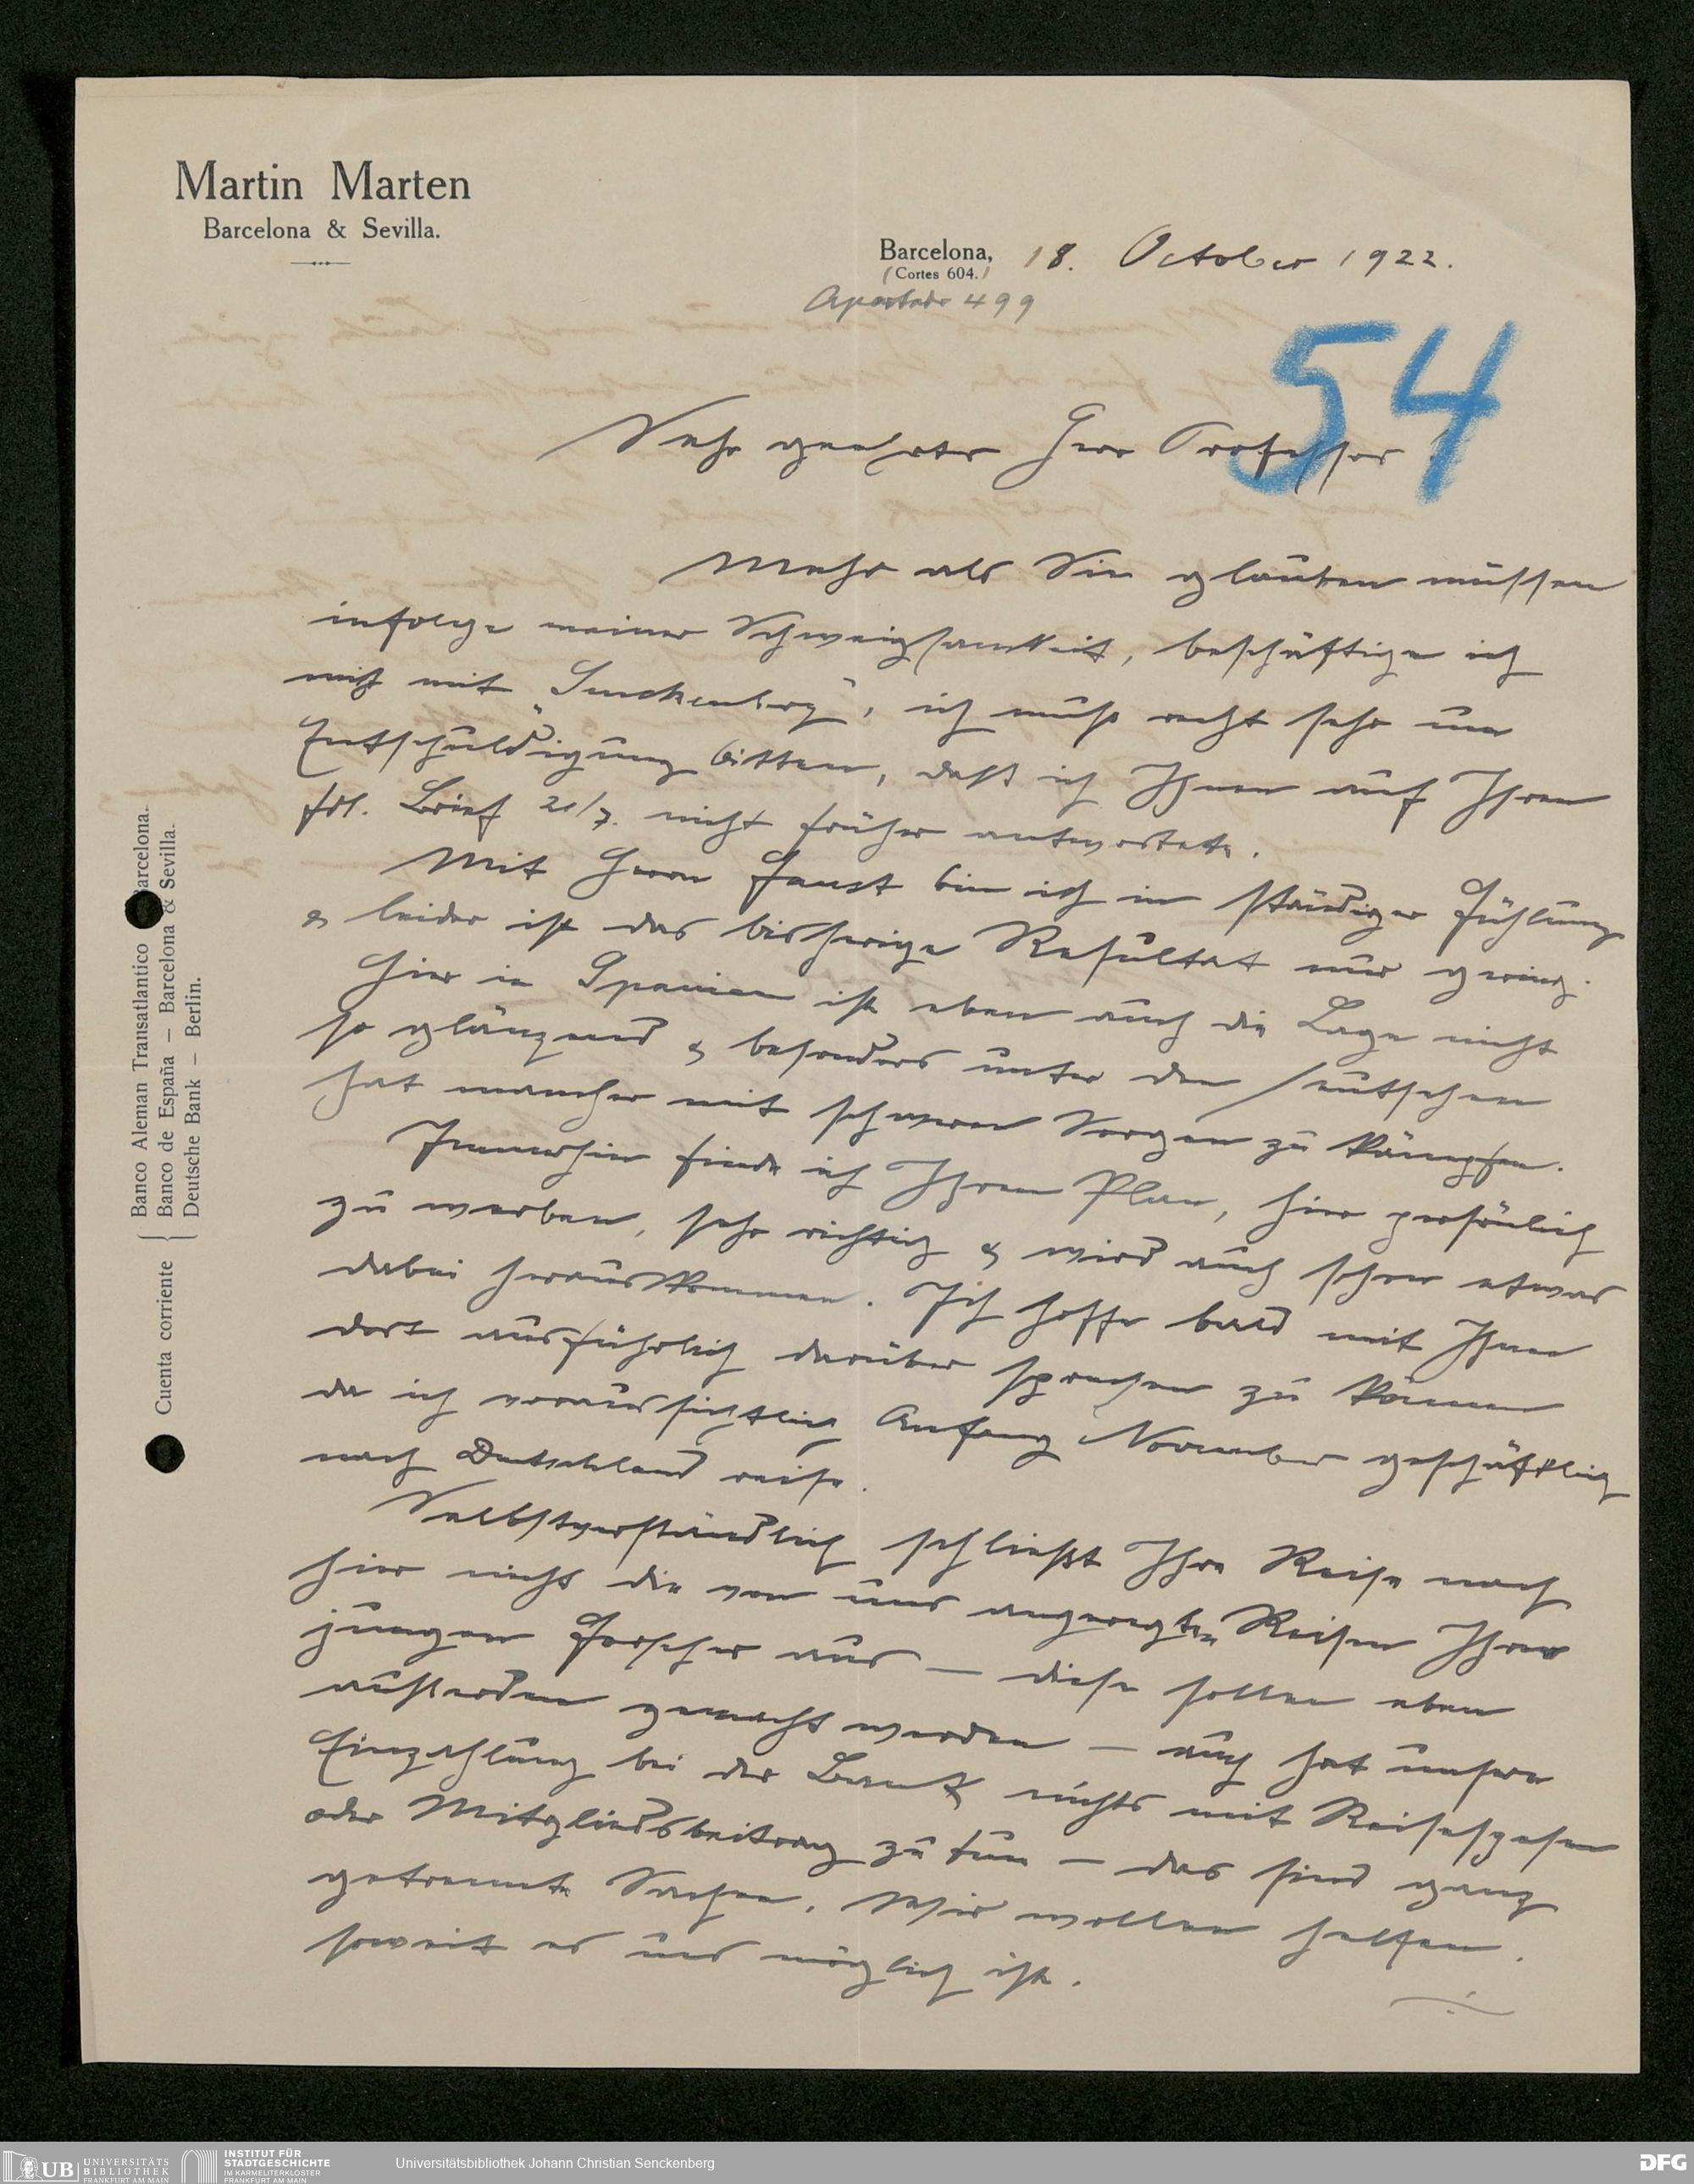 Martin Marten
Barcelona & Sevilla.
Barcelona, 18. October 1922.
(Cortes 604.)
Apartado 499
54
Sehr geehrter Herr Professor
Mehr als Sie glauben müssen
infolge meiner Schweigsamkeit, beschäftige ich
mich mit „Senckenberg“, ich muß recht sehr um
Entschuldigung bitten, daß ich Ihnen auf Ihren
frdl. Brief 21/7. nicht früher antwortete.
Mit Herrn Faust bin ich in ständiger Fühlung
& leider ist das bisherige Resultat nur gering.
Hier in Spanien ist eben auch die Lage nicht
so glänzend & besonders unter den Deutschen
hat mancher mit schweren Sorgen zu kämpfen.
Immerhin finde ich Ihren Plan, hier persönlich
zu werben, sehr richtig & wird auch schon etwas
dabei herauskommen. Ich hoffe bald mit Ihnen
dort ausführlich darüber sprechen zu können
da ich voraussichtlich Anfang November geschäftlich
nach Deutschland reise.
Selbstverständlich schließt Ihre Reise nach
hier nicht die von uns angeregten Reisen Ihrer
jungen Forscher aus — diese sollen eben
außerdem gemacht werden — auch hat unsere
Einzahlung bei der Bank nichts mit Reisespesen
oder Mitgliedsbeitrag zu tun — das sind ganz
getrennte Sachen. Wir wollen helfen,
soweit es uns möglich ist.
Cuenta corriente
Banco Aleman Transatlantico Barcelona.
Banco de España — Barcelona & Sevilla.
Deutsche Bank — Berlin.
UB UNIVERSITÄTS
BIBLIOTHEK
FRANKFURT AM MAIN
INSTITUT FÜR
STADTGESCHICHTE
IM KARMELITERKLOSTER
FRANKFURT AM MAIN
Universitätsbibliothek Johann Christian Senckenberg
DFG